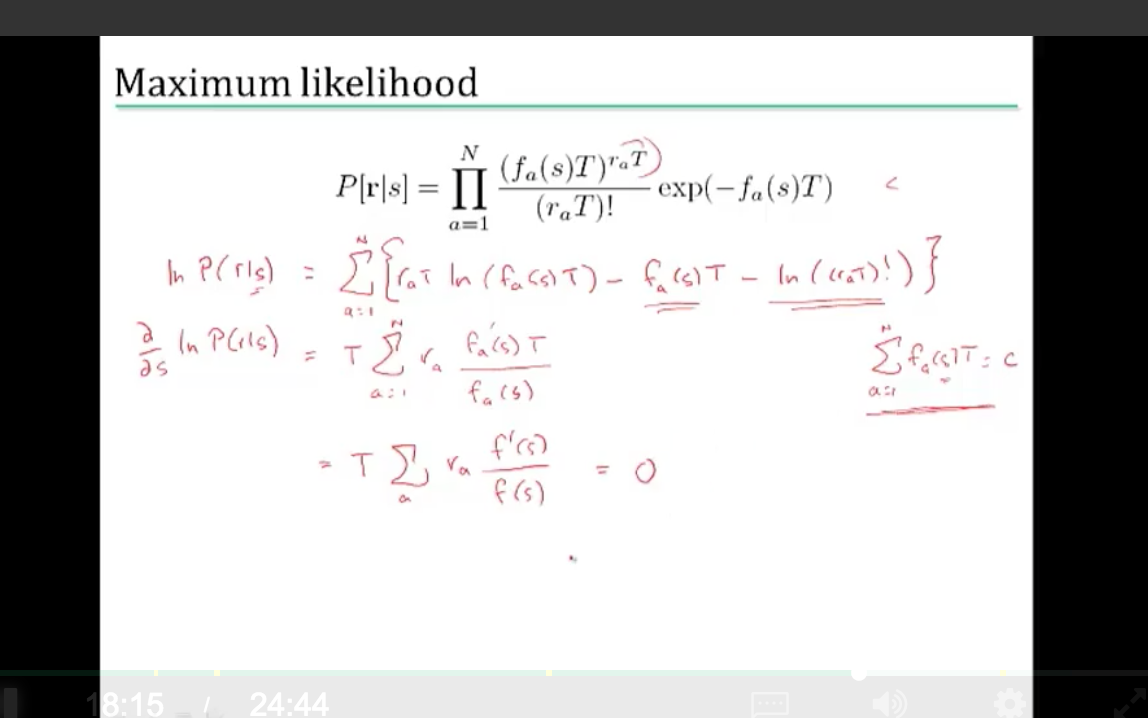 Maximum likelihood
P[r|s] = ∏_{a=1}^{N} (f_a(s)T)^{r_aT} / (r_aT)! exp(−f_a(s)T) <
ln P(r|s) = Σ_{a=1}^{N} { r_aT ln(f_a(s)T) − f_a(s)T − ln((r_aT)!) }
∂/∂s ln P(r|s) = T Σ_{a=1}^{N} r_a f_a'(s)T / f_a(s)
Σ_{a=1}^{N} f_a(s)T = c
= T Σ_a r_a f'(s) / f(s) = 0
18:15 / 24:44